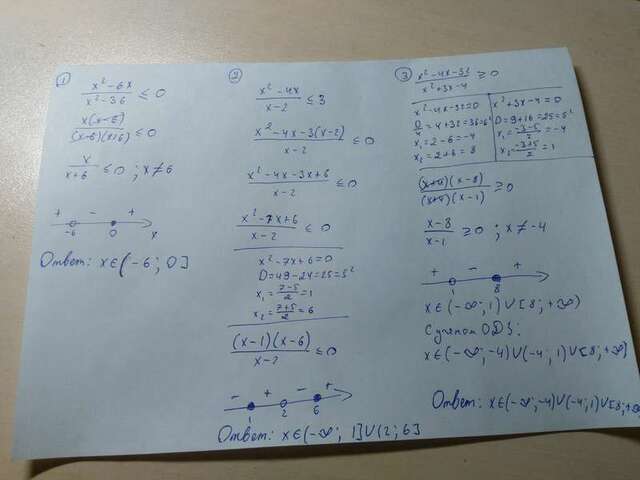 1
x² - 6x / x² - 36 ≤ 0
x(x-6) / (x-6)(x+6) ≤ 0
x / x+6 ≤ 0 ; x ≠ 6
+ - +
-6 0 x
Ответ: x∈(-6; 0]
2
x² - 4x / x-2 ≤ 3
x² - 4x - 3(x-2) / x-2 ≤ 0
x² - 4x - 3x + 6 / x-2 ≤ 0
x² - 7x + 6 / x-2 ≤ 0
x² - 7x + 6 = 0
D = 49 - 24 = 25 = 5²
x₁ = 7-5 / 2 = 1
x₂ = 7+5 / 2 = 6
(x-1)(x-6) / x-2 ≤ 0
- + - +
1 2 6
Ответ: x∈(-∞; 1]∪(2; 6]
3
x² - 4x - 32 / x² + 3x - 4 ≥ 0
x² - 4x - 32 = 0
D/4 = 4 + 32 = 36 = 6²
x₁ = 2 - 6 = -4
x₂ = 2 + 6 = 8
x² + 3x - 4 = 0
D = 9 + 16 = 25 = 5²
x₁ = -3-5 / 2 = -4
x₂ = -3+5 / 2 = 1
(x+4)(x-8) / (x+4)(x-1) ≥ 0
x-8 / x-1 ≥ 0 ; x ≠ -4
+ - +
1 8
x∈(-∞; 1)∪[8; +∞)
С учетом ОДЗ:
x∈(-∞; -4)∪(-4; 1)∪[8; +∞)
Ответ: x∈(-∞; -4)∪(-4; 1)∪[8; +∞)